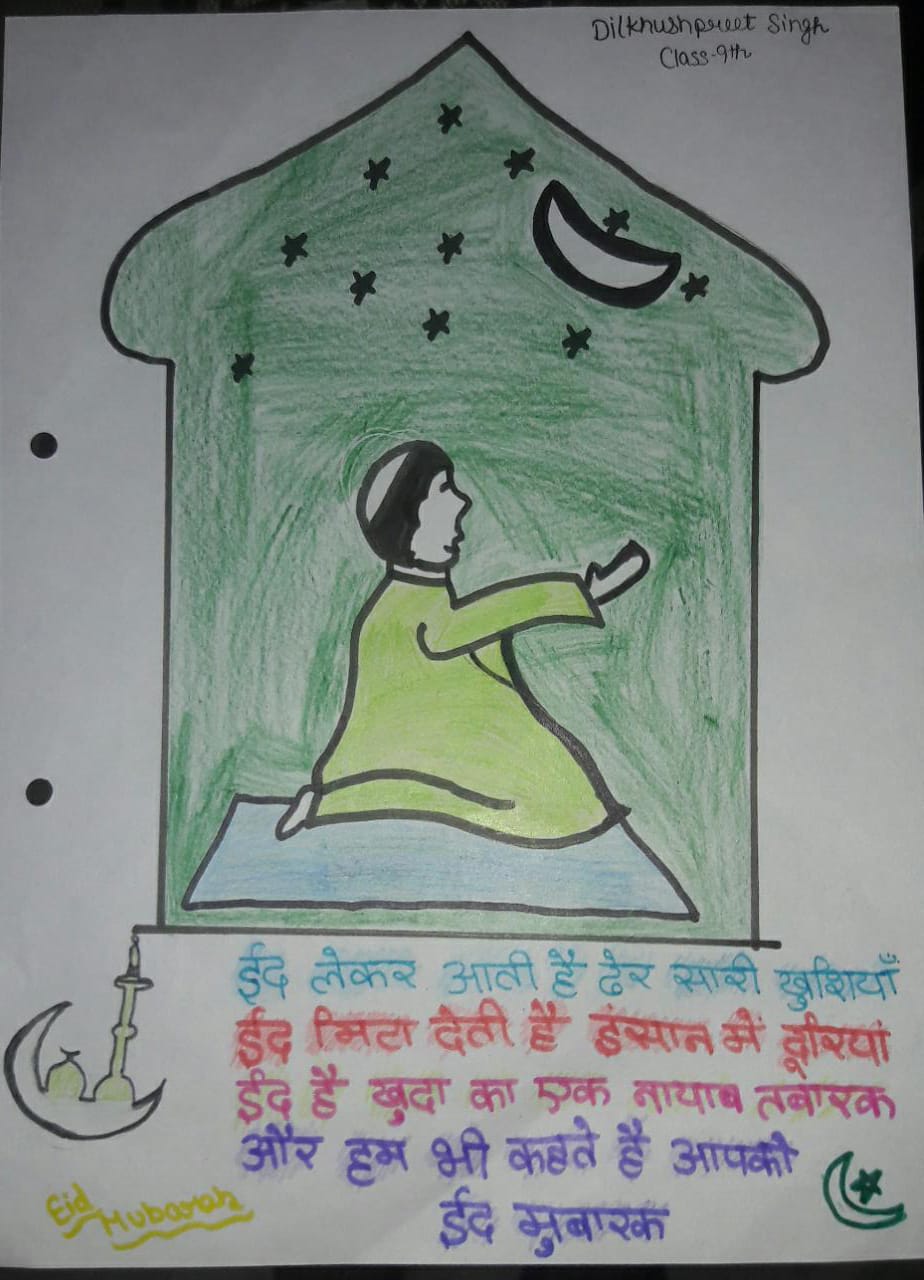 Dilkhushpreet Singh
Class-9th
ईद लेकर आती है ढेर सारी खुशियाँ
ईद मिटा देती है इंसान में दूरियां
ईद है खुदा का एक नायाब तबारक
और हम भी कहते है आपको
ईद मुबारक
Eid Mubarak